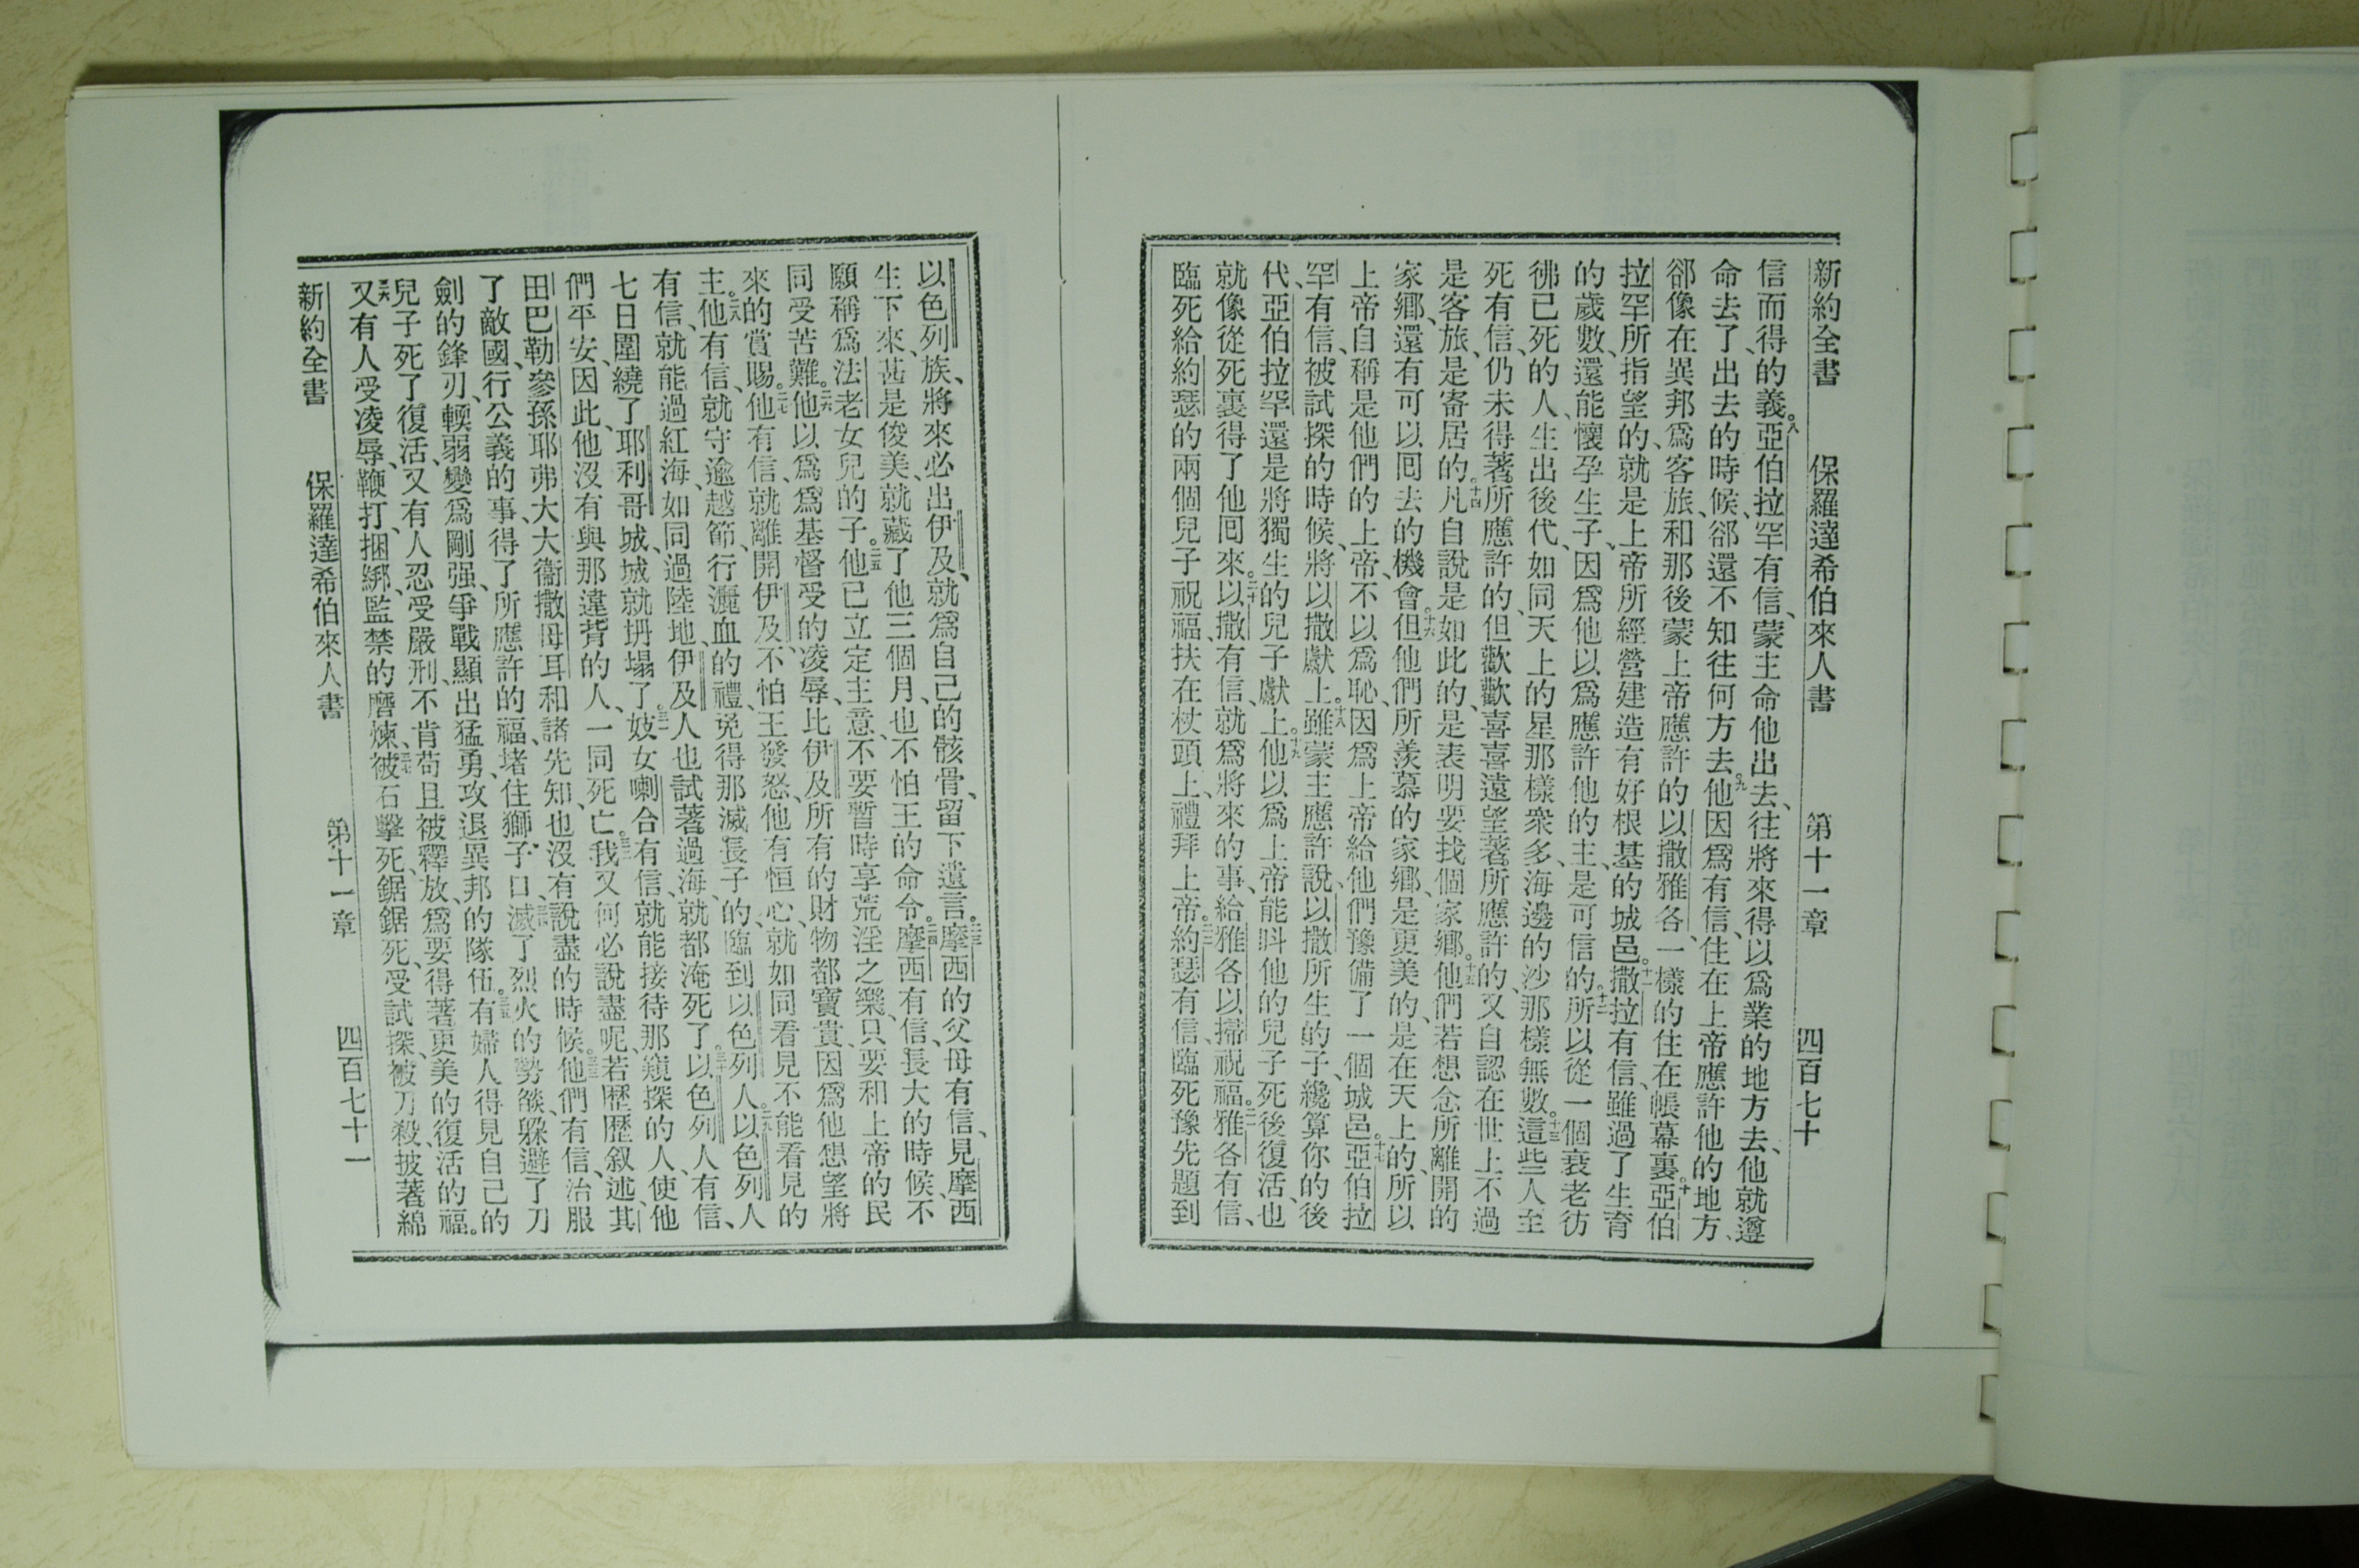 新約全書 保羅達希伯來人書 第十一章 四百七十
信而得的義。八亞伯拉罕有信、蒙主命他出去、往將來得以爲業的地方去、他就遵
命去了、出去的時候、卻還不知往何方去。九他因爲有信、住在上帝應許他的地方、
卻像在異邦爲客旅、和那後蒙上帝應許的以撒雅各、一樣的住在帳幕裏。十亞伯
拉罕所指望的、就是上帝所經營建造有好根基的城邑。十一撒拉有信、雖過了生育
的歲數、還能懷孕生子、因爲他以爲應許他的主、是可信的。十二所以從一個衰老彷
彿已死的人、生出後代、如同天上的星那樣衆多、海邊的沙那樣無數。十三這些人至
死有信、仍未得著所應許的、但歡歡喜喜遠望著所應許的、又自認在世上不過
是客旅、是寄居的。十四凡自說是如此的、是表明要找個家鄉。十五他們若想念所離開的
家鄉、還有可以囘去的機會。十六但他們所羨慕的家鄉、是更美的、是在天上的、所以
上帝自稱是他們的上帝、不以爲恥、因爲上帝給他們豫備了一個城邑。十七亞伯拉
罕有信、被試探的時候、將以撒獻上。十八雖蒙主應許說、以撒所生的子、纔算你的後
代、亞伯拉罕還是將獨生的兒子獻上。十九他以爲上帝能呌他的兒子死後復活、也
就像從死裏得了他囘來。二十以撒有信、就爲將來的事、給雅各以掃祝福。二一雅各有信、
臨死給約瑟的兩個兒子祝福、扶在杖頭上、禮拜上帝。二二約瑟有信、臨死豫先題到
以色列族、將來必出伊及、就爲自己的骸骨、留下遺言。二三摩西的父母有信、見摩西
生下來、甚是俊美、就藏了他三個月、也不怕王的命令。二四摩西有信、長大的時候、不
願稱爲法老女兒的子。二五他已立定主意、不要暫時享荒淫之樂、只要和上帝的民
同受苦難。二六他以爲爲基督受的凌辱、比伊及所有的財物都寶貴、因爲他想望將
來的賞賜。二七他有信、就離開伊及、不怕王發怒、他有恒心、就如同看見不能看見的
主。二八他有信、就守逾越節、行灑血的禮、免得那滅長子的、臨到以色列人。二九以色列人
有信、就能過紅海、如同過陸地、伊及人也試著過海、就都淹死了。三十以色列人有信、
七日圍繞了耶利哥城、城就坍塌了。三一妓女喇合有信、就能接待那窺探的人、使他
們平安、因此、他沒有與那違背的人、一同死亡。三二我又何必說盡呢、若歷歷叙述、其
田巴勒參孫耶弗大大衞撒母耳和諸先知、也沒有說盡的時候。三三他們有信、治服
了敵國、行公義的事、得了所應許的福、堵住獅子口、三四滅了烈火的勢燄、躱避了刀
劍的鋒刃、輭弱變爲剛强、爭戰顯出猛勇、攻退異邦的隊伍。三五有婦人得見自己的
兒子死了復活、又有人忍受嚴刑、不肯苟且被釋放、爲要得著更美的復活的福。
三六又有人受凌辱、鞭打、捆綁、監禁的磨煉、三七被石擊死、鋸鋸死、受試探、被刀殺、披著綿
新約全書 保羅達希伯來人書 第十一章 四百七十一